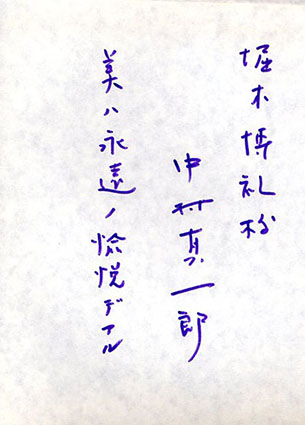 堀木博礼様
中村真一郎
美ハ永遠ノ愉悦デアル